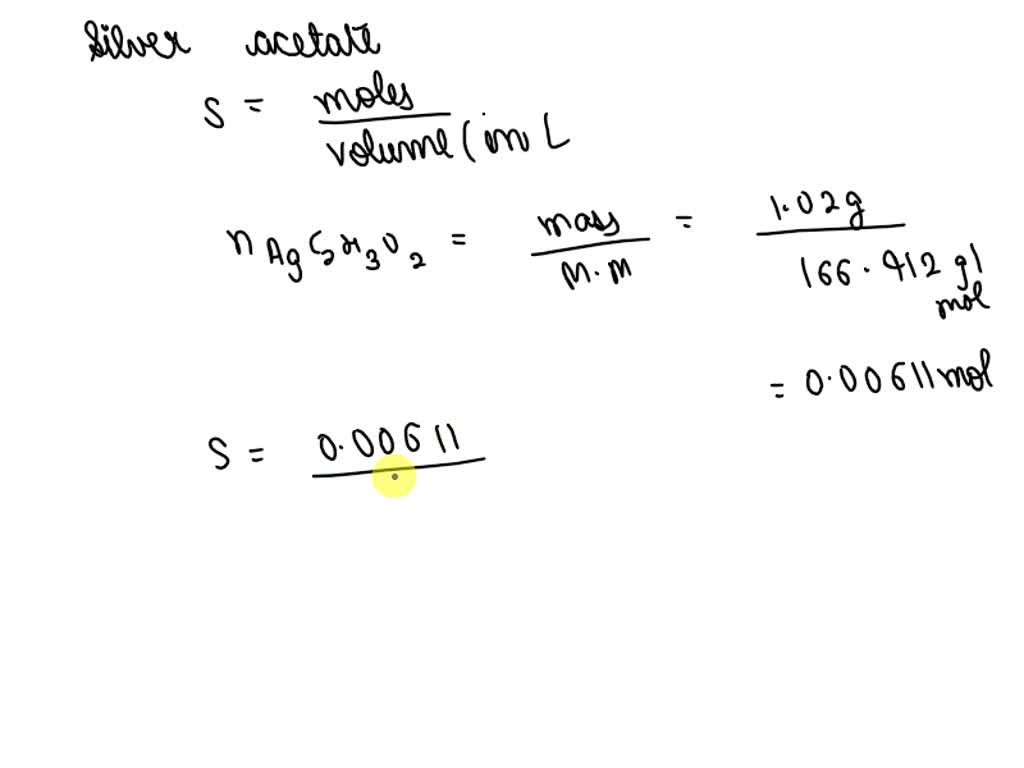 Silver acetate
S = moles / volume (in L
n AgC2H3O2 = mass / M.M = 1.02g / 166.912 g/mol
= 0.00611 mol
S = 0.00611